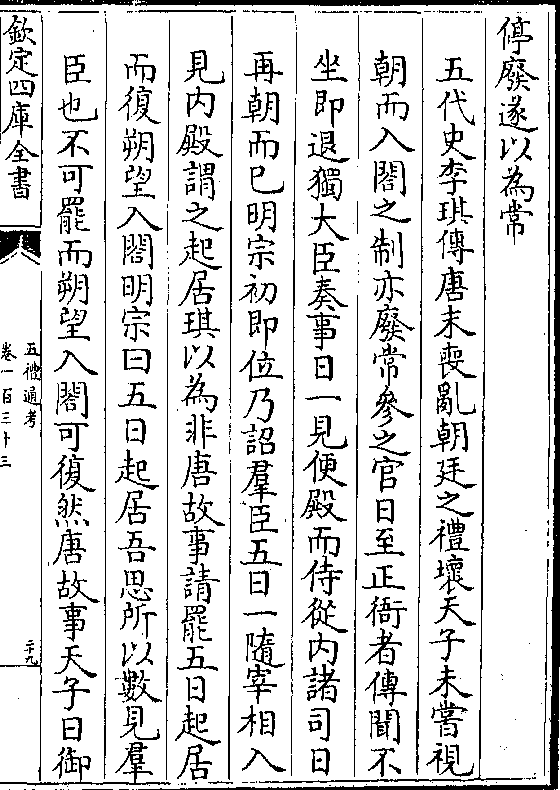 停廢遂以為常
五代史李琪傳唐末喪亂朝廷之禮壞天子未嘗視
朝而入閤之制亦廢常參之官日至正衙者傳聞不
坐即退獨大臣奏事日一見便殿而侍從内諸司日
再朝而已明宗初即位乃詔羣臣五日一隨宰相入
見内殿謂之起居琪以為非唐故事請罷五日起居
而復朔望入閤明宗曰五日起居吾思所以數見羣
臣也不可罷而朔望入閤可復然唐故事天子日御
欽定四庫全書
五禮通考
卷一百三十三
二十九